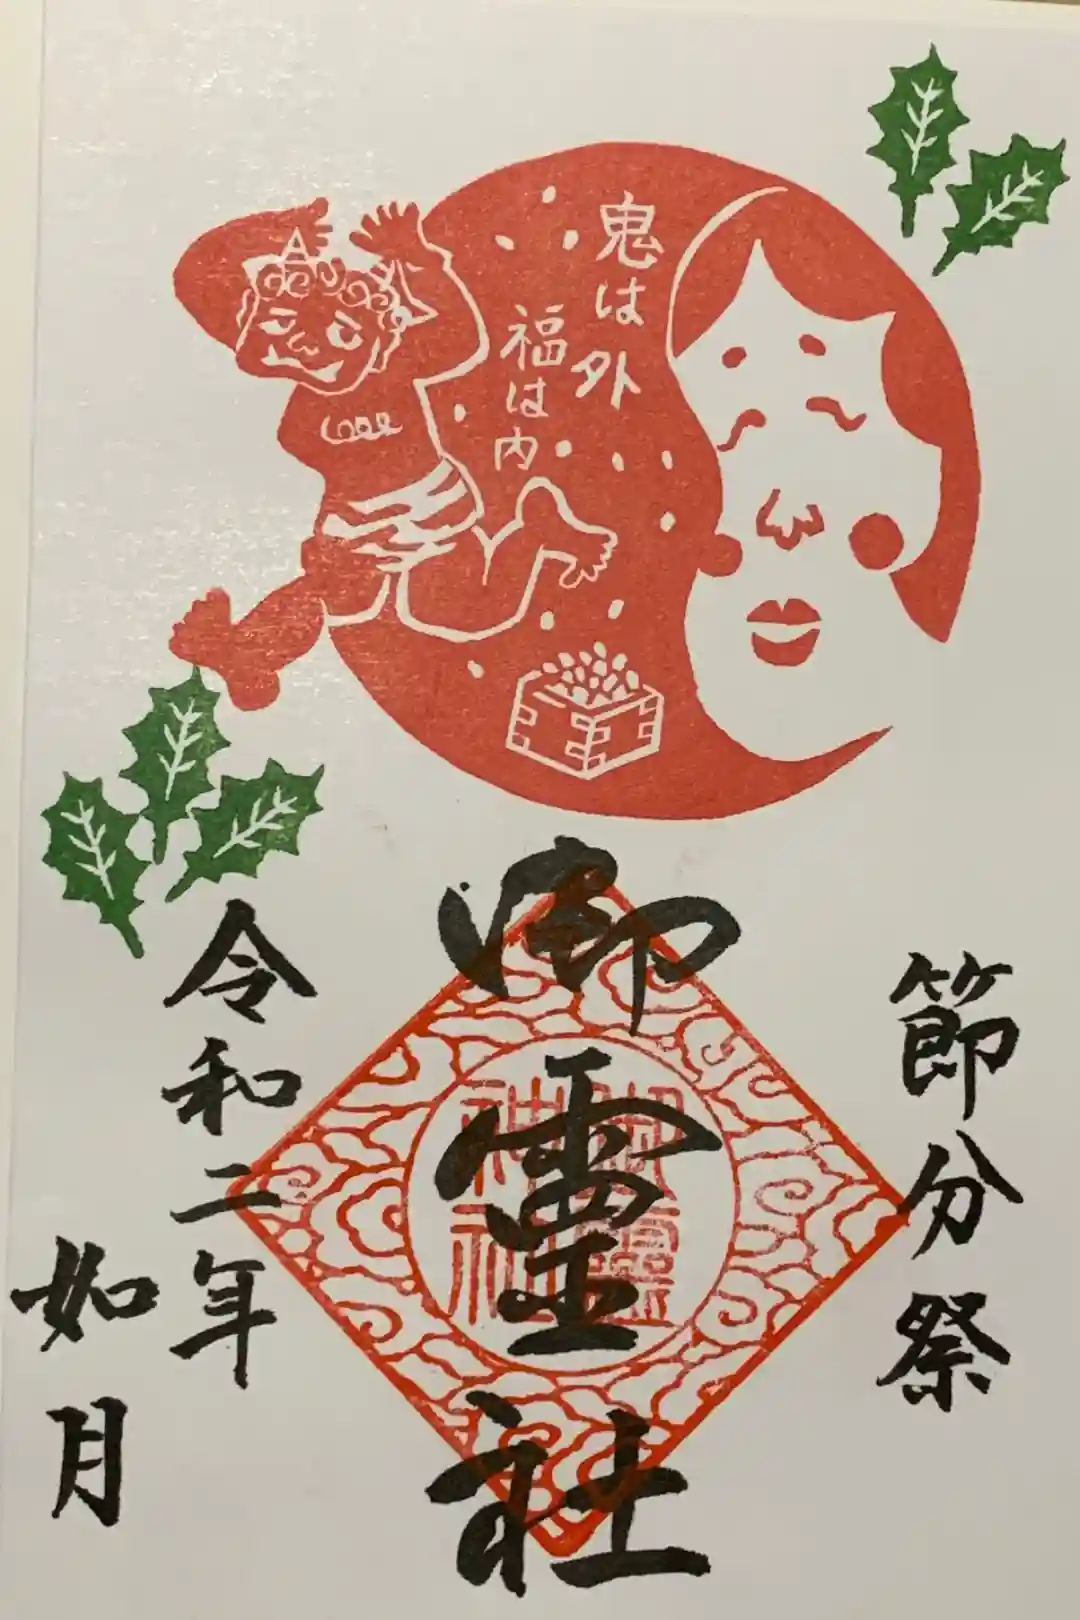 鬼は外
福は内
節分祭
御霊社
御霊
神社
令和二年
如月